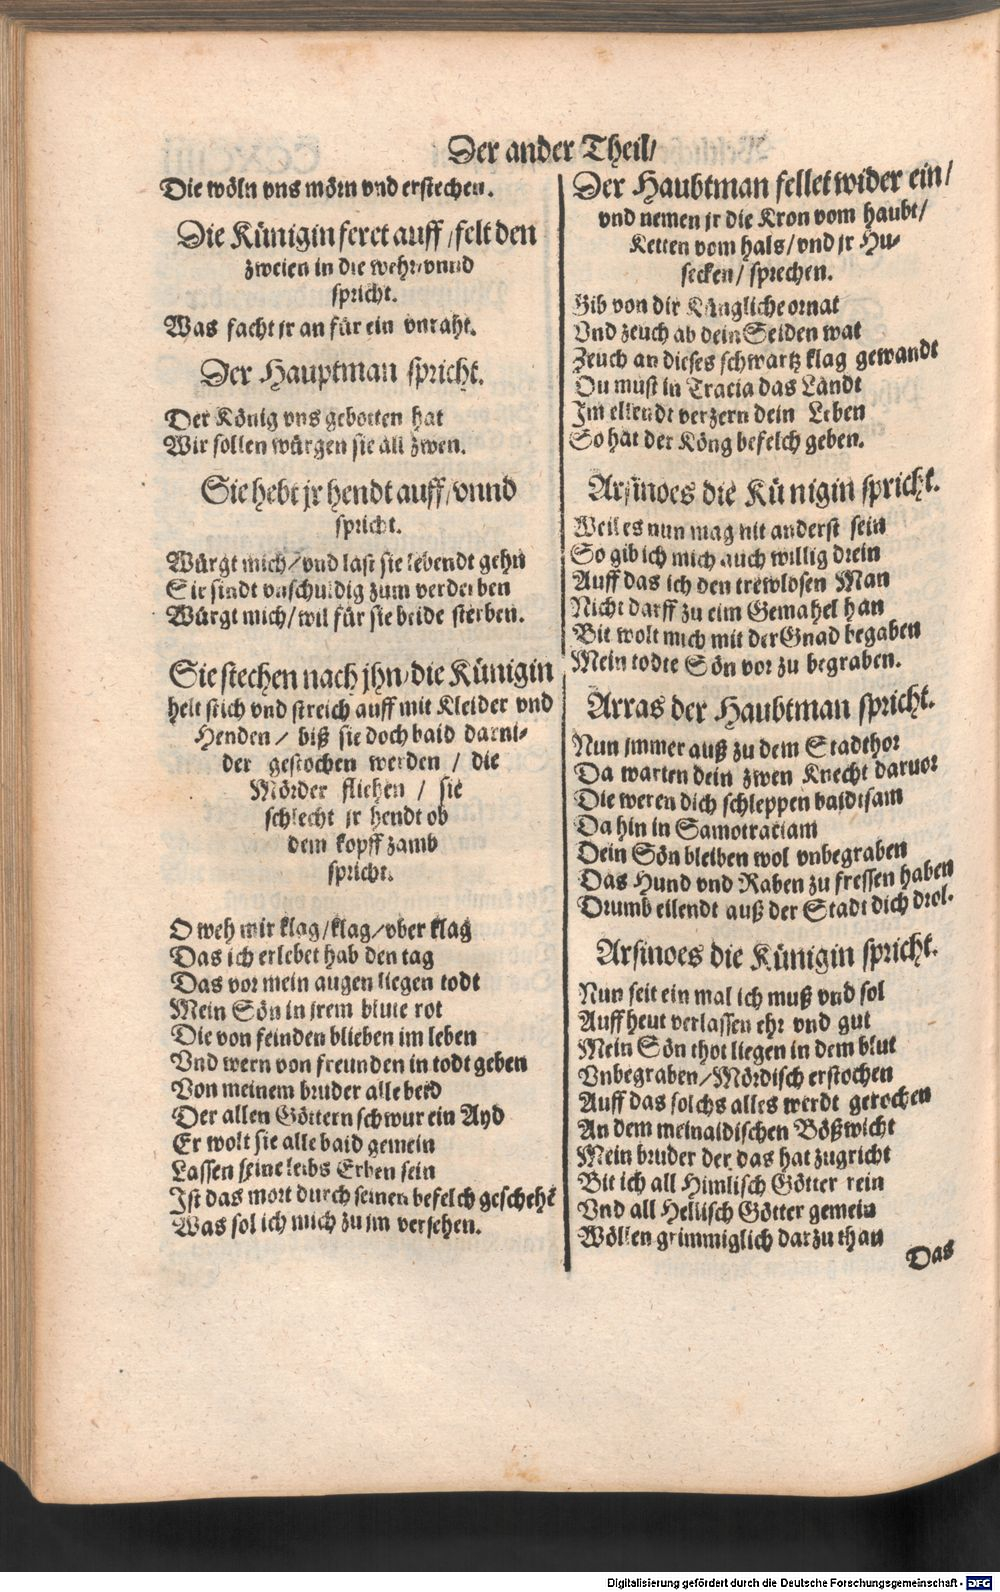 Der ander Theil/
Die wöln vns mörn vnd erstechen.
Die Künigin feret auff/felt den
zweien in die wehr/vnnd
spricht.
Was facht jr an für ein vnraht.
Der Hauptman spricht.
Der König vns gebotten hat
Wir sollen würgen sie all zwen.
Sie hebt jr hendt auff/vnnd
spricht.
Würgt mich/vnd last sie lebendt gehn
Sie sindt vnschuldig zum verderben
Würgt mich/wil für sie beide sterben.
Sie stechen nach jhn/die Künigin
helt stich vnd streich auff mit Kleider vnd
Henden/ biß sie doch baid darni-
der gestochen werden / die
Mörder fliehen / sie
schlecht jr hendt ob
dem kopff zamb
spricht.
O weh mir klag/klag/vber klag
Das ich erlebet hab den tag
Das vor mein augen liegen todt
Mein Sön in jrem blute rot
Die von feinden blieben im leben
Vnd wern von freunden in todt geben
Von meinem bruder alle beid
Der allen Göttern schwur ein Ayd
Er wolt sie alle baid gemein
Lassen seine leibs Erben sein
Ist das mort durch seinen befelch geschehē
Was sol ich mich zu im versehen.
Der Haubtman fellet wider ein/
vnd nemen jr die Kron vom haubt/
Ketten vom hals/vnd jr Hu-
secken/ sprechen.
Gib von dir Küngliche ornat
Vnd zeuch ab dein Seiden wat
Zeuch an dieses schwartz klag gewandt
Du must in Tracia das Landt
Im ellendt verzern dein Leben
So hat der Köng befelch geben.
Arsinoes die Künigin spricht.
Weil es nun mag nit anderst sein
So gib ich mich auch willig drein
Auff das ich den trewlosen Man
Nicht darff zu eim Gemahel han
Bit wolt mich mit der Gnad begaben
Mein todte Sön vor zu begraben.
Arras der Haubtman spricht.
Nun jmmer auß zu dem Stadthor
Da warten dein zwen Knecht daruor
Die weren dich schleppen baidtsam
Da hin in Samotratiam
Dein Sön bleiben wol vnbegraben
Das Hund vnd Raben zu fressen haben
Drumb eilendt auß der Stadt dich drol.
Arsinoes die Künigin spricht.
Nun seit ein mal ich muß vnd sol
Auff heut verlassen ehr vnd gut
Mein Sön thot liegen in dem blut
Vnbegraben/Mördisch erstochen
Auff das solchs alles werdt gerochen
An dem meinaidischen Bößwicht
Mein bruder der das hat zugricht
Bit ich all Himlisch Götter rein
Vnd all Hellisch Götter gemein
Wöllen grimmiglich darzu than
Das
Digitalisierung gefördert durch die Deutsche Forschungsgemeinschaft - DFG